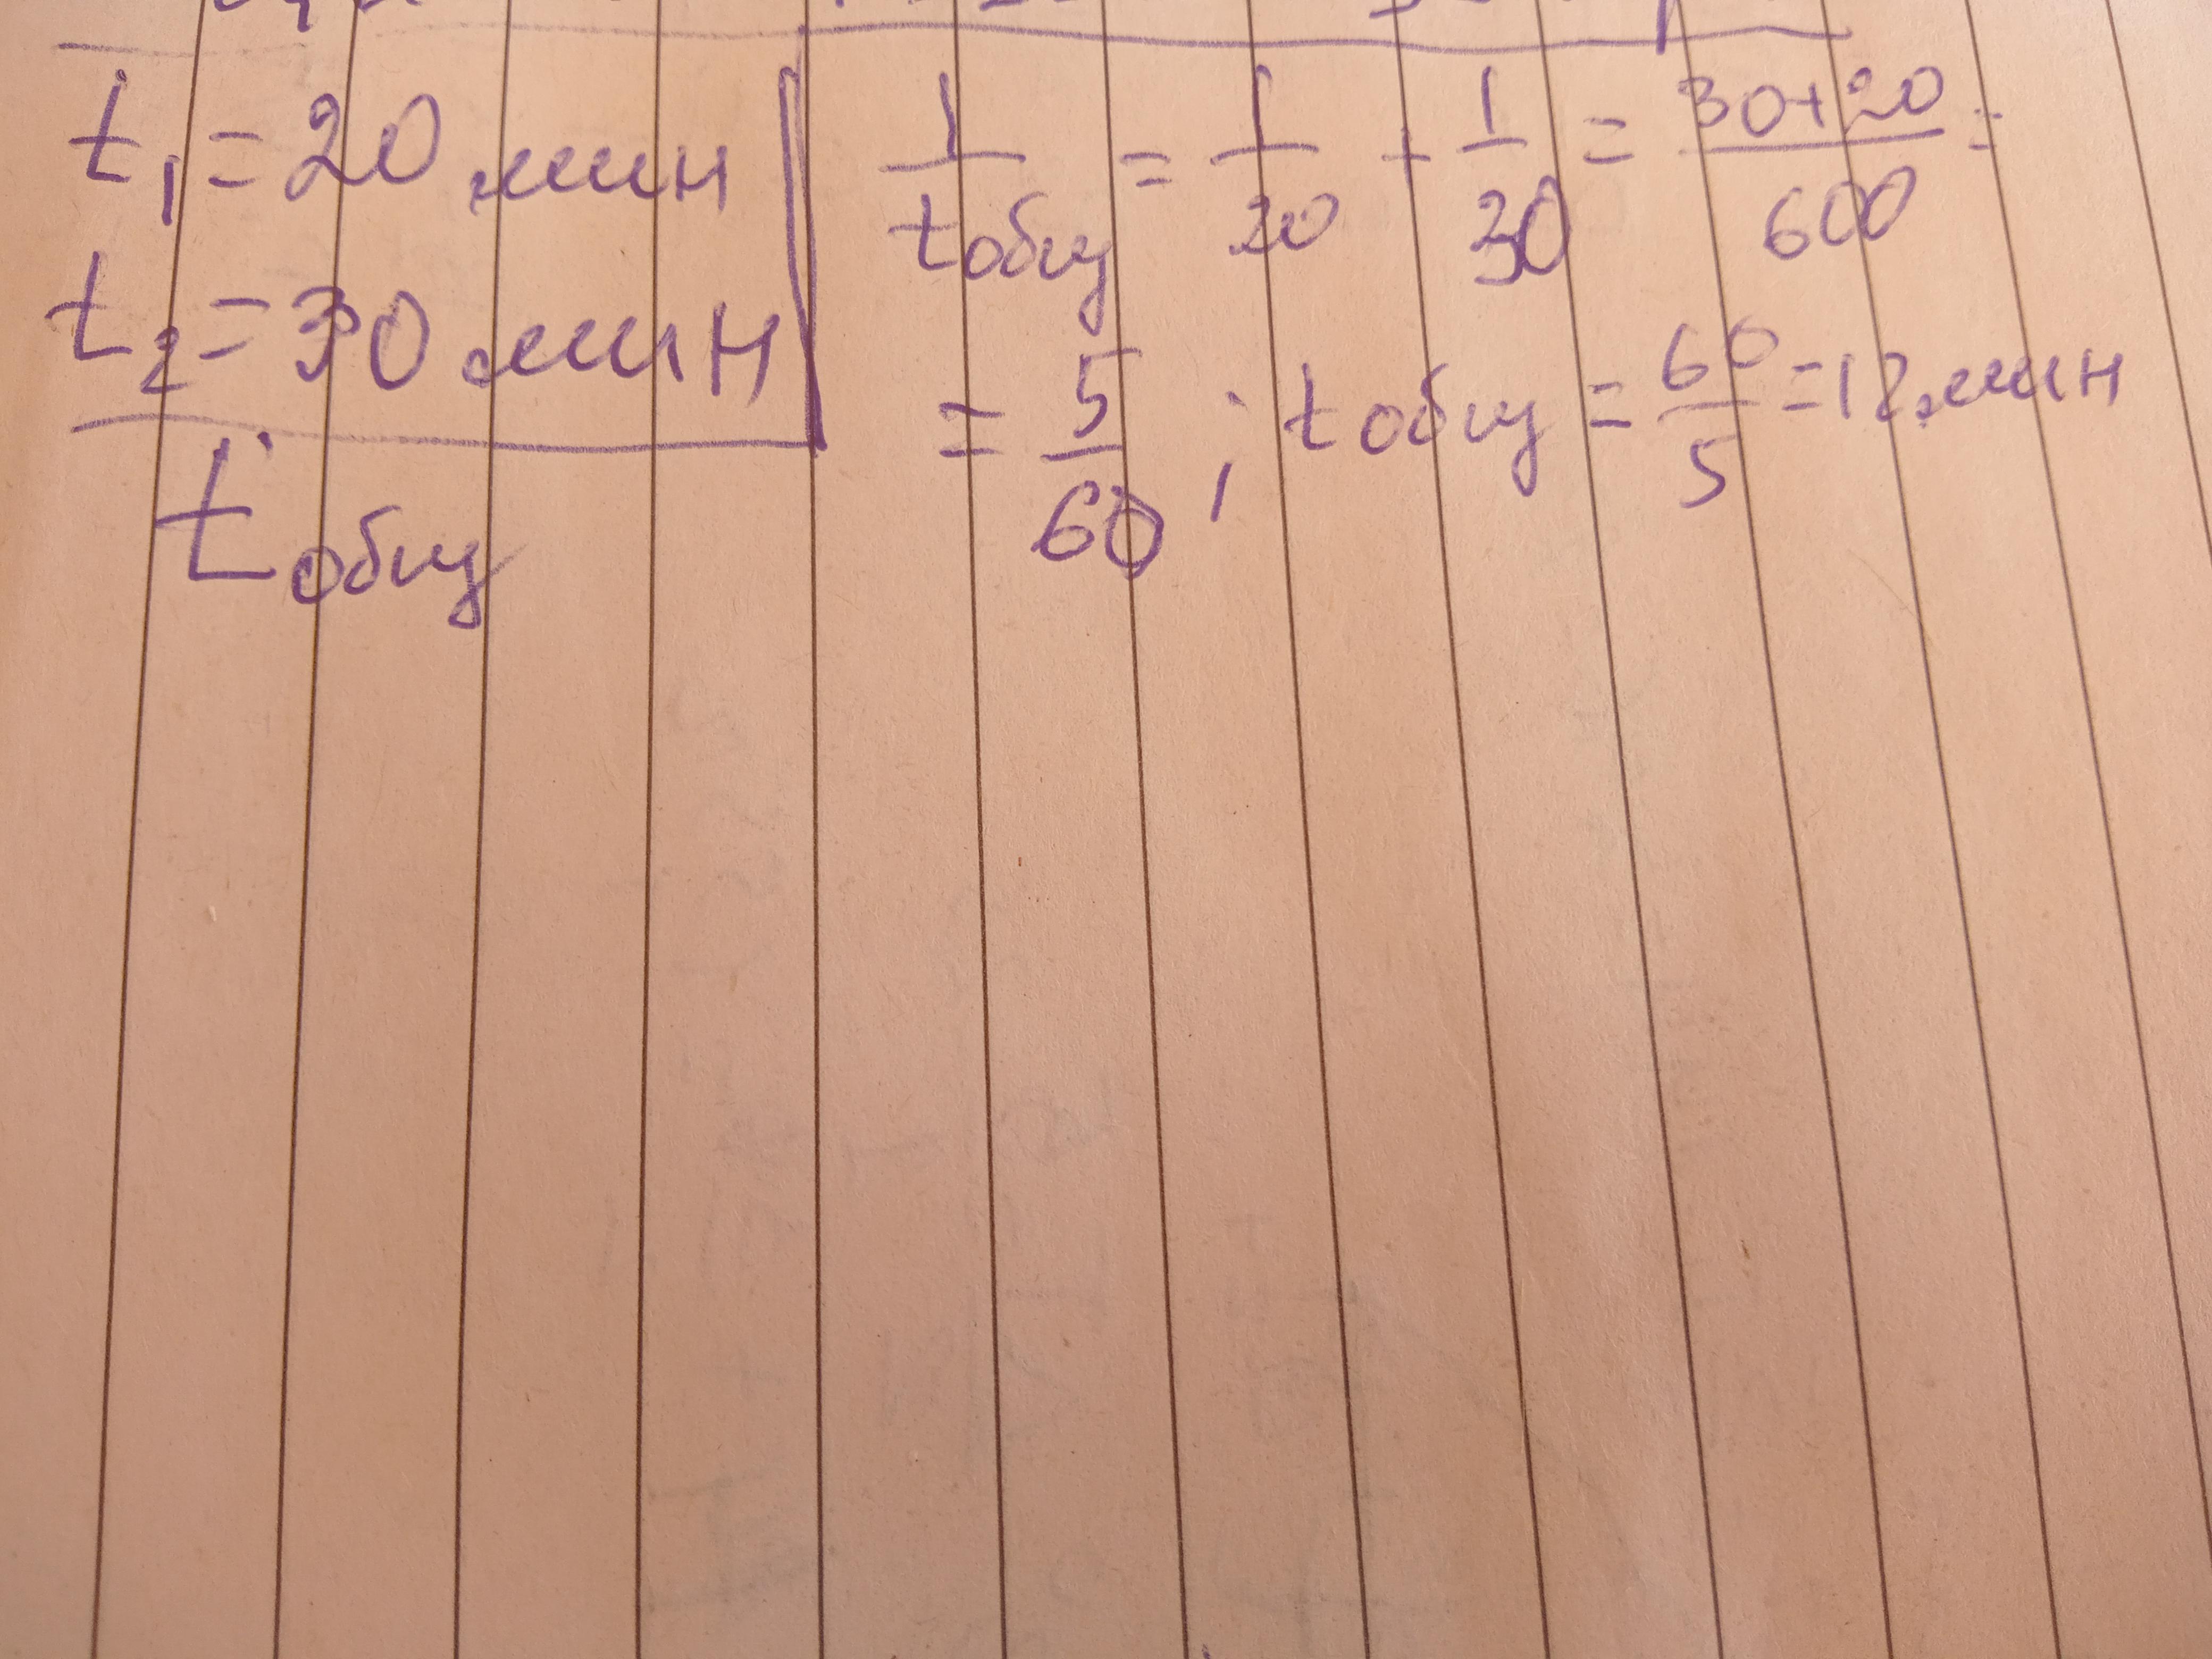 t₁ = 20 мин
t₂ = 30 мин
tобщ
1/tобщ = 1/20 + 1/30 = 30+20/600 =
= 5/60 ; tобщ = 60/5 = 12 мин